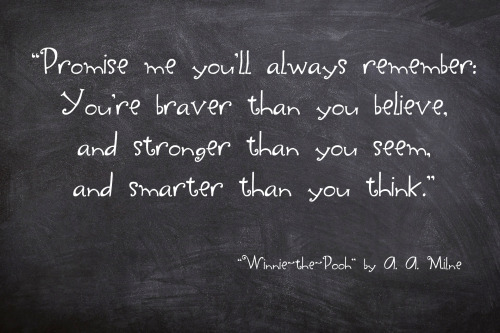 “Promise me you’ll always remember:
You’re braver than you believe,
and stronger than you seem,
and smarter than you think.”
“Winnie~the~Pooh” by A. A. Milne